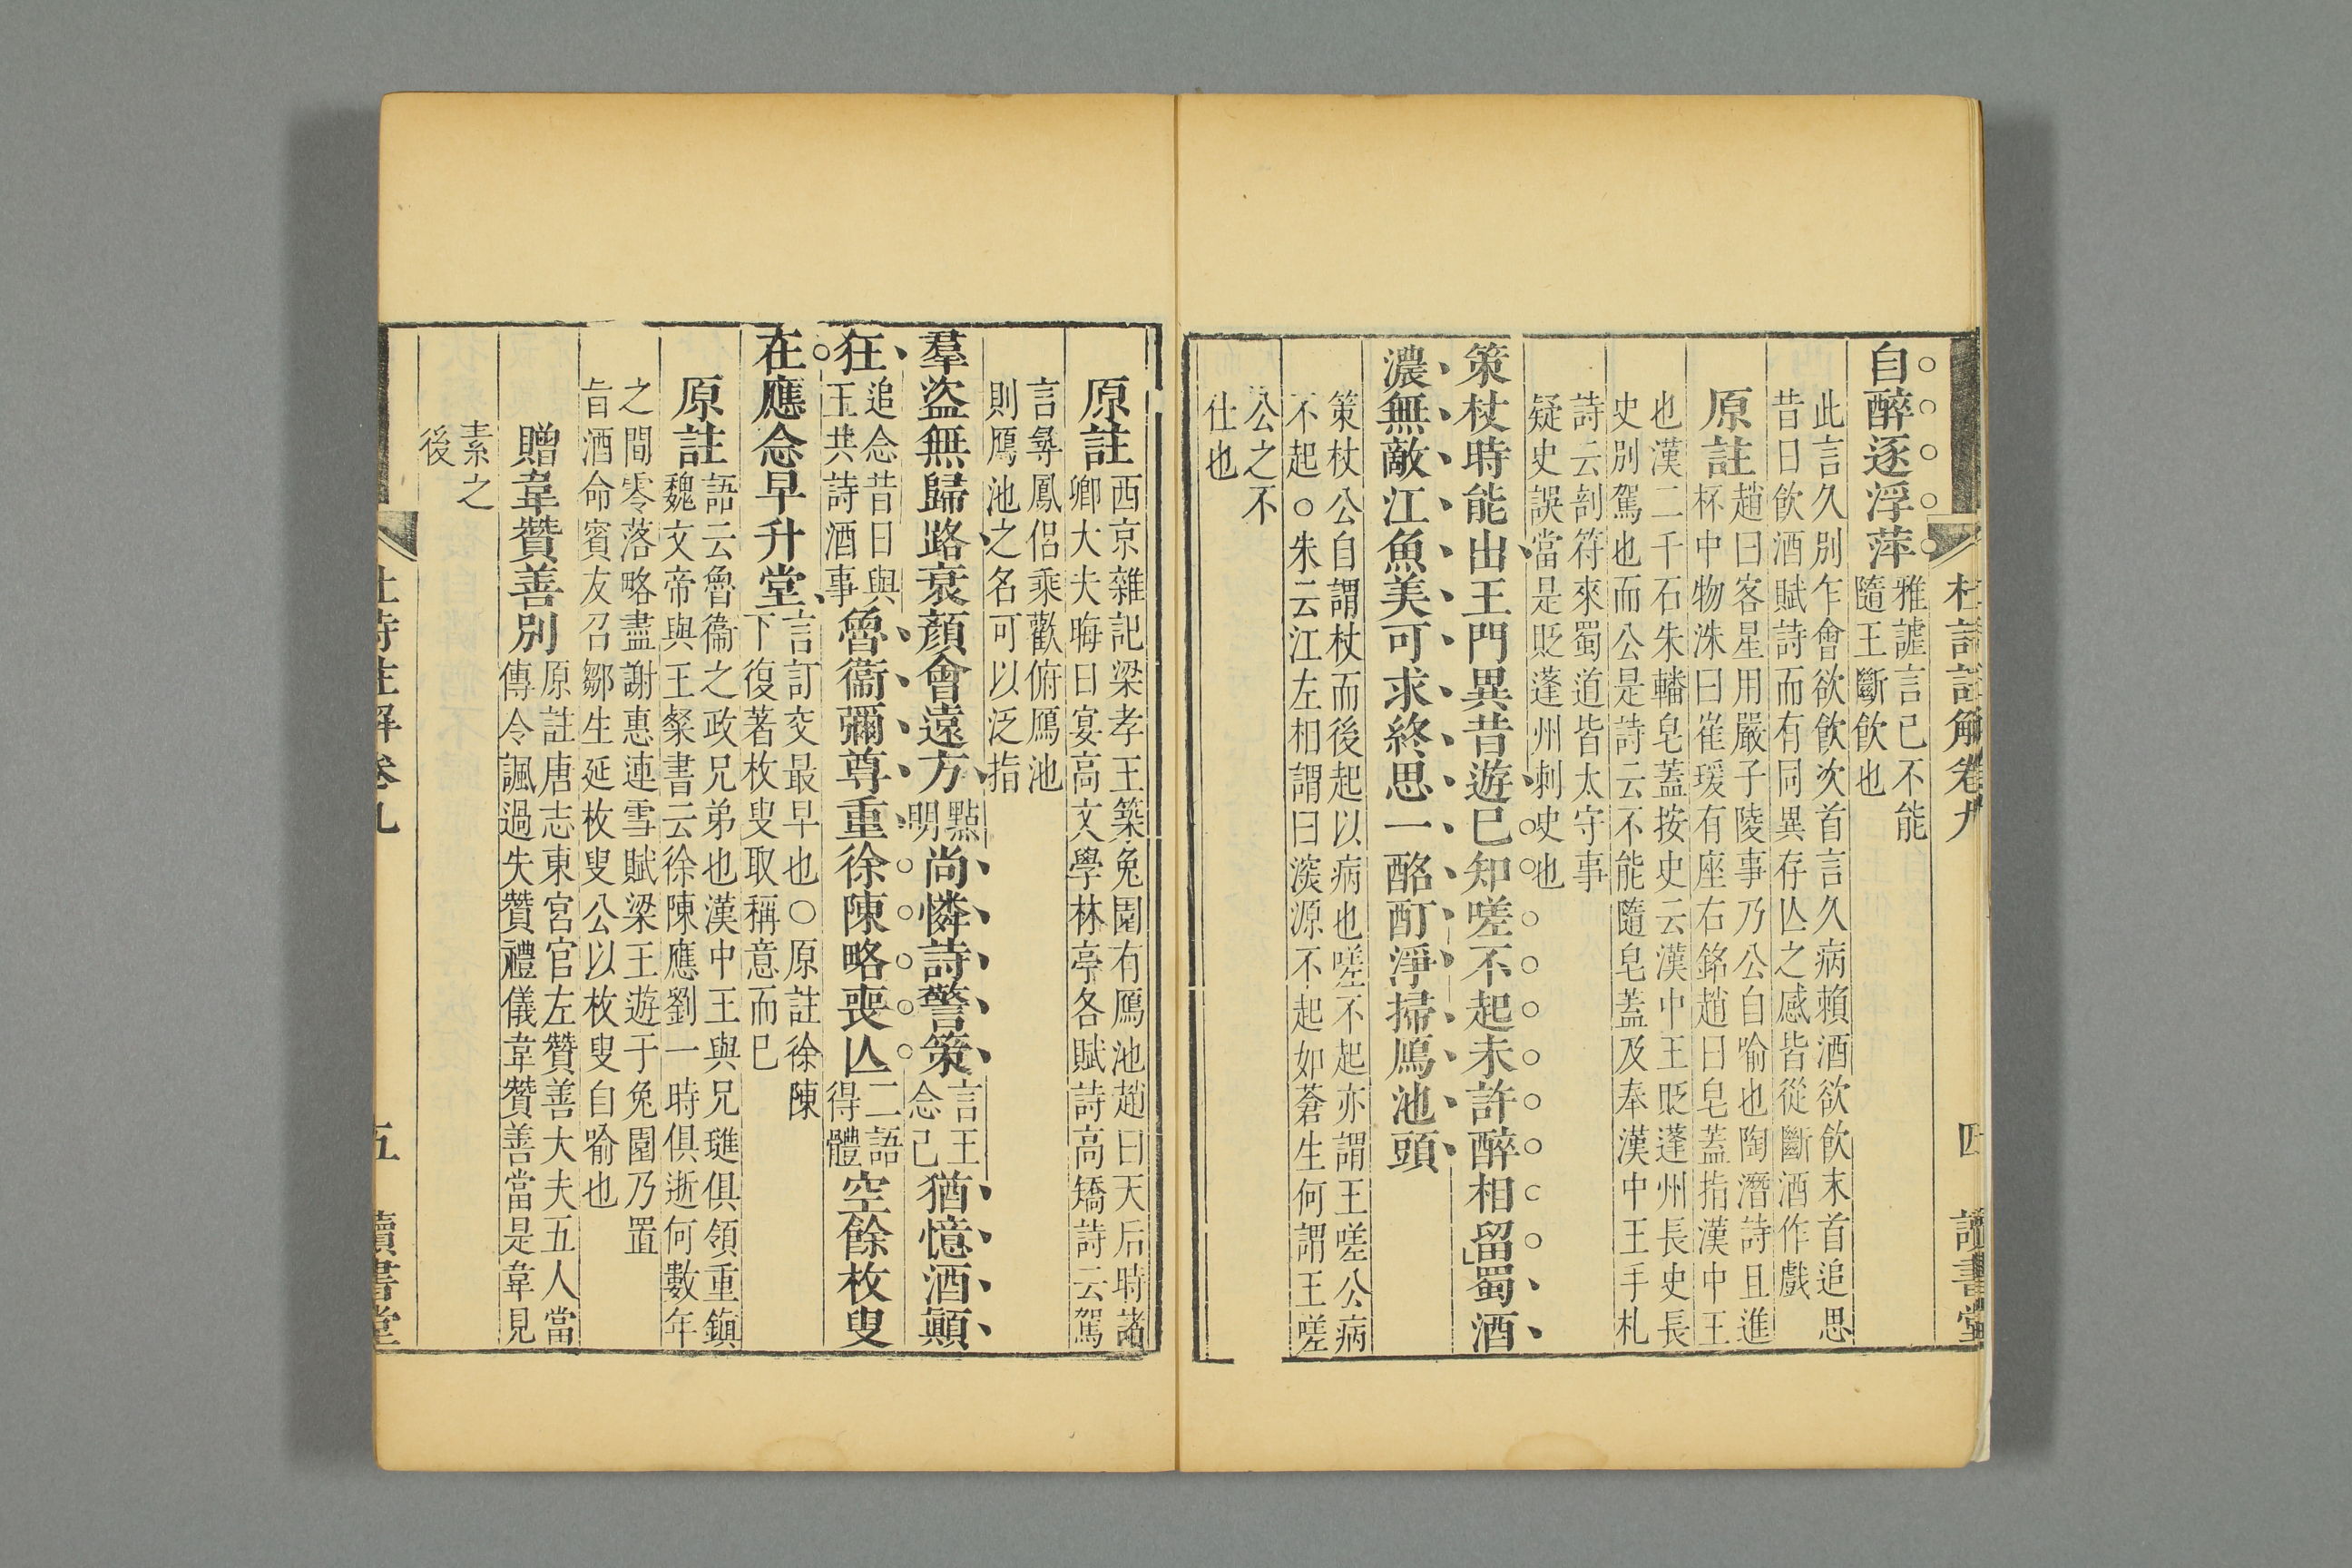 杜詩註解卷九
四
讀書堂
自醉逐浮萍
雅謔言已不能
隨王斷飲也
此言久別乍會欲飲次首言久病賴酒欲飲末首追思
昔日飲酒賦詩而有同異存亾之感皆從斷酒作戲
原註
趙曰客星用嚴子陵事乃公自喻也陶潛詩且進
杯中物洙曰崔瑗有座右銘趙曰皂蓋指漢中王
也漢二千石朱轓皂蓋按史云漢中王貶蓬州長史長
史別駕也而公是詩云不能隨皂蓋及奉漢中王手札
詩云剖符來蜀道皆太守事
疑史誤當是貶蓬州刺史也
策杖時能出王門異昔遊已知嗟不起未許醉相留蜀酒
濃無敵江魚美可求終思一酩酊淨掃鴈池頭
策杖公自謂杖而後起以病也嗟不起亦謂王嗟公病
不起○朱云江左相謂曰淡源不起如蒼生何謂王嗟
公之不
仕也
原註
西京雜記梁孝王築兔園有鴈池趙曰天后時諸
卿大夫晦日宴高文學林亭各賦詩高矯詩云駕
言尋鳳侶乘歡俯鴈池
則鴈池之名可以泛指
羣盜無歸路衰顏會遠方
點
明
尚憐詩警策
言王
念己
猶憶酒顛
狂
追念昔日與
王共詩酒事
魯衞彌尊重徐陳略喪亾
二語
得體
空餘枚叟
在應念早升堂
言訂交最早也○原註徐陳
下復著枚叟取稱意而已
原註
語云魯衞之政兄弟也漢中王與兄璡俱領重鎮
魏文帝與王粲書云徐陳應劉一時俱逝何數年
之間零落略盡謝惠連雪賦梁王遊于兔園乃置
旨酒命賓友召鄒生延枚叟公以枚叟自喻也
贈韋贊善別
原註唐志東宮官左贊善大夫五人當
傳令諷過失贊禮儀韋贊善當是韋見
素之
後
杜詩註解卷九
五
讀書堂